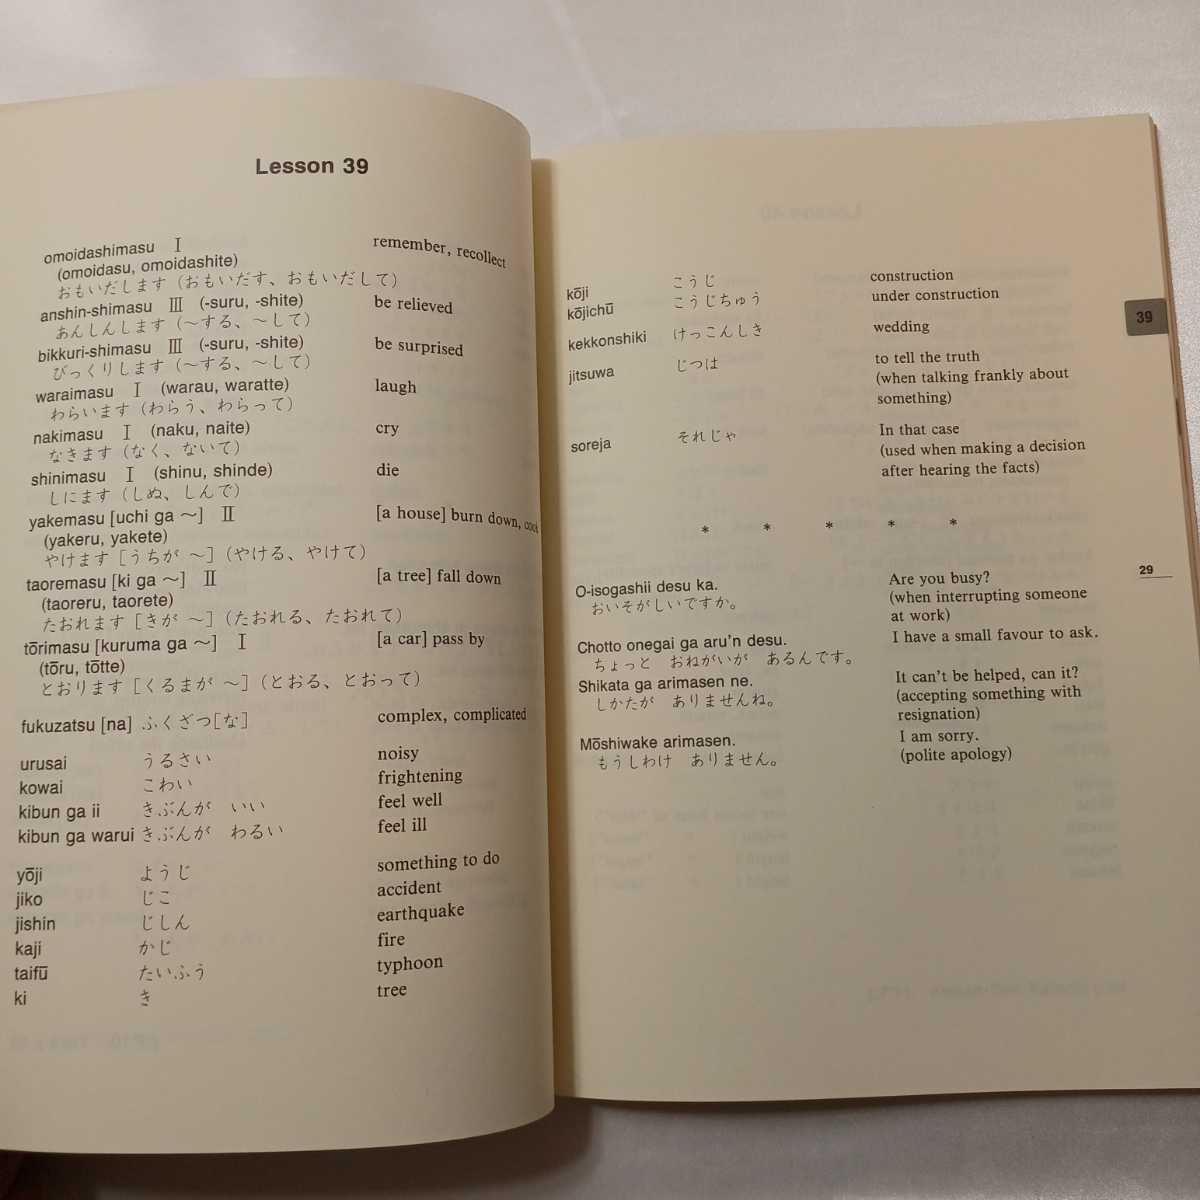 Lesson 39
omoidashimasu Ⅰ remember, recollect
(omoidasu, omoidashite)
おもいだします（おもいだす、おもいだして）
anshin-shimasu Ⅲ (-suru, -shite) be relieved
あんしんします（～する、～して）
bikkuri-shimasu Ⅲ (-suru, -shite) be surprised
びっくりします（～する、～して）
waraimasu Ⅰ (warau, waratte) laugh
わらいます（わらう、わらって）
nakimasu Ⅰ (naku, naite) cry
なきます（なく、ないて）
shinimasu Ⅰ (shinu, shinde) die
しにます（しぬ、しんで）
yakemasu [uchi ga ～] Ⅱ [a house] burn down,
(yakeru, yakete)
やけます［うちが ～］（やける、やけて）
taoremasu [ki ga ～] Ⅱ [a tree] fall down
(taoreru, taorete)
たおれます［きが ～］（たおれる、たおれて）
tōrimasu [kuruma ga ～] Ⅰ [a car] pass by
(tōru, tōtte)
とおります［くるまが ～］（とおる、とおって）
fukuzatsu [na] ふくざつ［な］ complex, complicated
urusai うるさい noisy
kowai こわい frightening
kibun ga ii きぶんが いい feel well
kibun ga warui きぶんが わるい feel ill
yōji ようじ something to do
jiko じこ accident
jishin じしん earthquake
kaji かじ fire
taifū たいふう typhoon
ki き tree
kōji こうじ construction
kōjichū こうじちゅう under construction
kekkonshiki けっこんしき wedding
jitsuwa じつは to tell the truth
(when talking frankly about
something)
soreja それじゃ In that case
(used when making a decision
after hearing the facts)
* * * * *
O-isogashii desu ka. Are you busy?
おいそがしいですか。 (when interrupting someone
at work)
Chotto onegai ga aru'n desu. I have a small favour to ask.
ちょっと おねがいが あるんです。
Shikata ga arimasen ne. It can't be helped, can it?
しかたが ありませんね。 (accepting something with
resignation)
Mōshiwake arimasen. I am sorry.
もうしわけ ありません。 (polite apology)
39
29